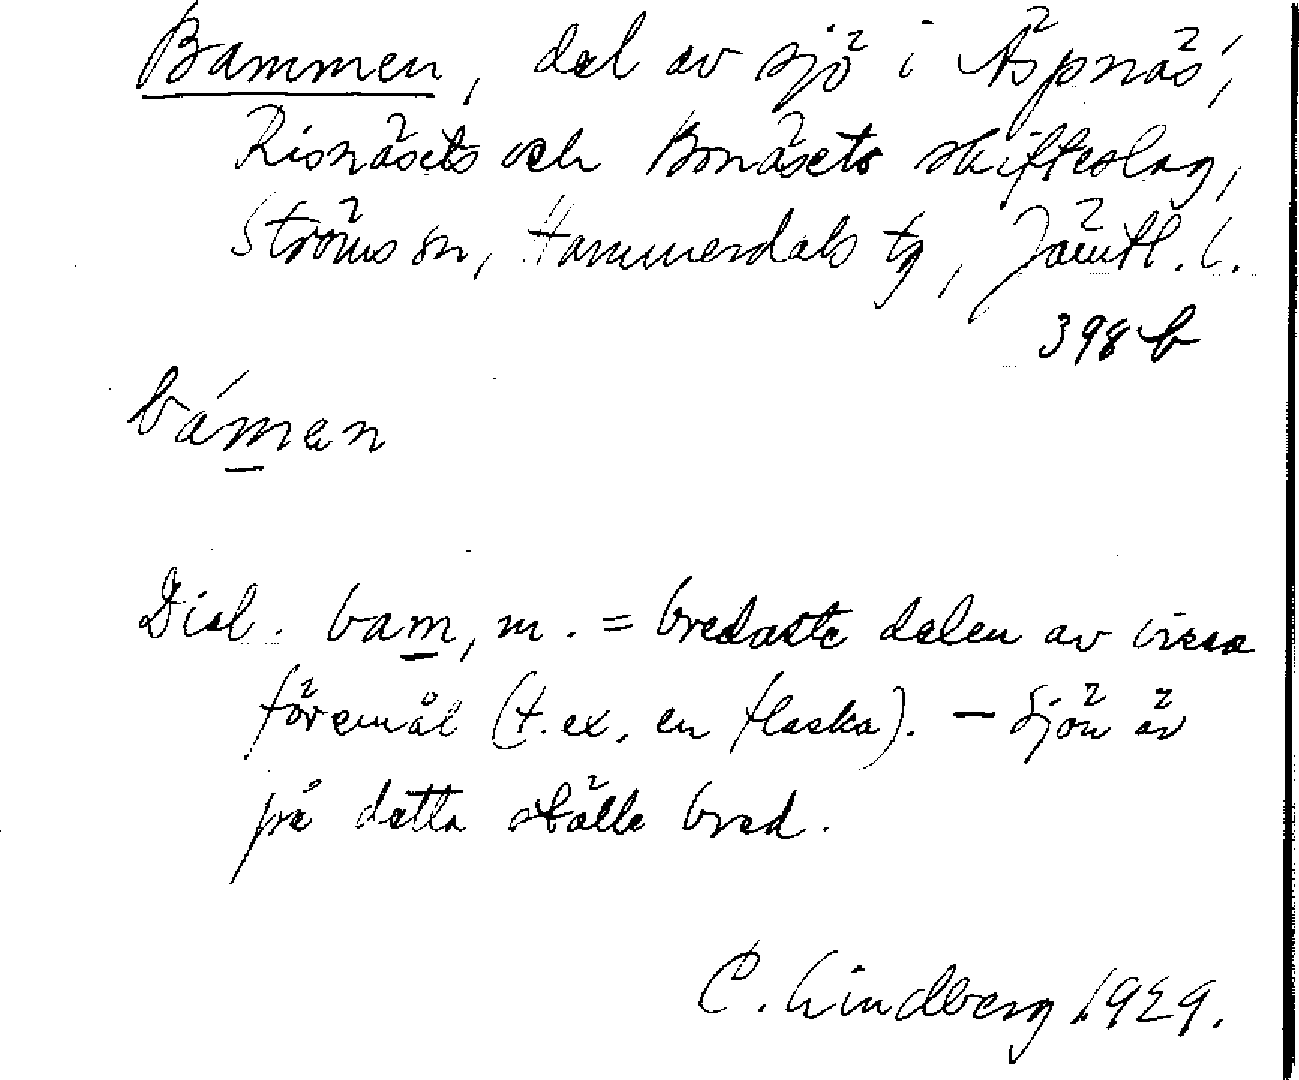 Bammen, del av sjö i Äspnäs,
Risnäsets och Bonäsets skifteslag,
Ströms sn, Hammerdals tg, Jämtl. l.
398 b
bámen
Dial. bam, m. = bredaste delen av vissa
föremål (t. ex. en flaska). — Sjön är
på detta ställe bred.
C. Lindberg 1929.